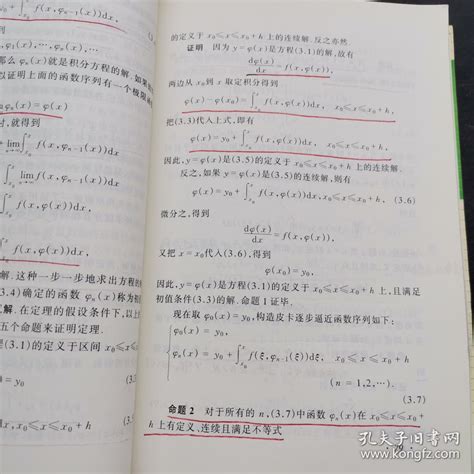 f(x,φₙ(x))dx,
(3.
φ₁(x),…,φₙ(x),…
那么 φₙ(x)就是积分方程的解. 如果
以证明上面的函数序列有一个极限函
φₙ(x)=φ(x)
时,就得到
+ lim∫f(x,φₙ₋₁(x))dx
∫lim f(x,φₙ₋₁(x))dx
f(x,φ(x))dx,
解. 这种一步一步地求出方程的
3.4)确定的函数 φₙ(x)称为初
似解. 在定理的假设条件下,以上
五个命题来证明定理.
(3.1)的定义于区间 x₀≤x≤
= y₀ (3.
dx, x₀≤x≤x₀+h (3.
的定义于 x₀≤x≤x₀+h 上的连续解. 反之亦然.
证明 因为 y=φ(x)是方程(3.1)的解,故有
dφ(x)/dx = f(x,φ(x)),
两边从 x₀到 x 取定积分得到
φ(x)-φ(x₀)=∫ₓ₀ˣ f(x,φ(x))dx, x₀≤x≤x₀+h,
把(3.3)代入上式,即有
φ(x)=y₀+∫ₓ₀ˣ f(x,φ(x))dx, x₀≤x≤x₀+h,
因此,y=φ(x)是(3.5)的定义于 x₀≤x≤x₀+h 上的连续解.
反之,如果 y=φ(x)是(3.5)的连续解,则有
φ(x)=y₀+∫ₓ₀ˣ f(x,φ(x))dx, x₀≤x≤x₀+h, (3.6)
微分之,得到
dφ(x)/dx = f(x,φ(x)),
又把 x=x₀代入(3.6),得到
φ(x₀)=y₀,
因此,y=φ(x)是方程(3.1)的定义于 x₀≤x≤x₀+h 上,且满足
初值条件(3.3)的解. 命题 1 证毕.
现在取 φ₀(x)=y₀,构造皮卡逐步逼近函数序列如下:
φ₀(x)=y₀,
φₙ(x)=y₀+∫ₓ₀ˣ f(ξ,φₙ₋₁(ξ))dξ, x₀≤x≤x₀+h
(n=1,2,…).
(3.7)
命题 2 对于所有的 n,(3.7)中函数 φₙ(x)在 x₀≤x≤x₀+
h 上有定义、连续且满足不等式
孔夫子旧书网